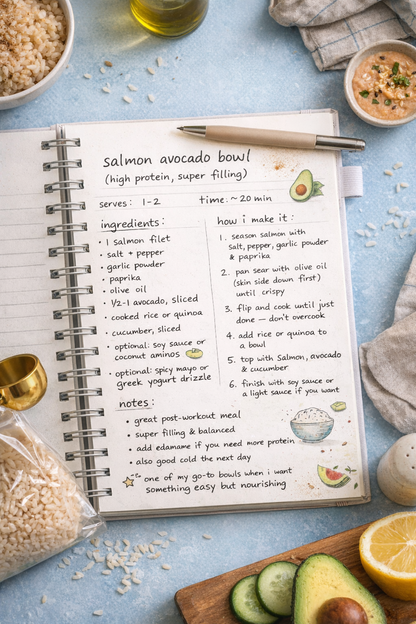 salmon avocado bowl
(high protein, super filling)
serves: 1-2
time: ~ 20 min
ingredients:
• 1 salmon filet
• salt + pepper
• garlic powder
• paprika
• olive oil
• 1/2-1 avocado, sliced
• cooked rice or quinoa
• cucumber, sliced
• optional: soy sauce or
coconut aminos
• optional: spicy mayo or
greek yogurt drizzle
how i make it:
1. season salmon with
salt, pepper, garlic powder
& paprika
2. pan sear with olive oil
(skin side down first)
until crispy
3. flip and cook until just
done – don't overcook
4. add rice or quinoa to
a bowl
5. top with salmon, avocado
& cucumber
6. finish with soy sauce or
a light sauce if you want
notes:
• great post-workout meal
• super filling & balanced
• add edamame if you need more protein
• also good cold the next day
one of my go-to bowls when i want
something easy but nourishing